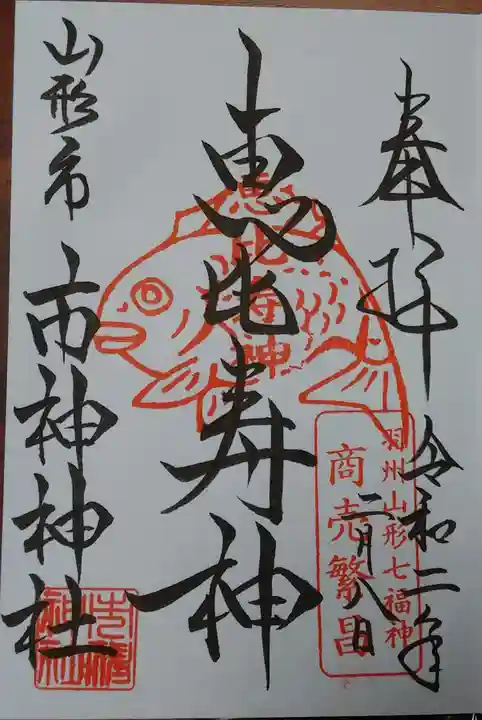 奉拝
令和二年
二月八日
羽州山形七福神
商売繁昌
恵比寿神
恵比寿神
山形市
市神神社